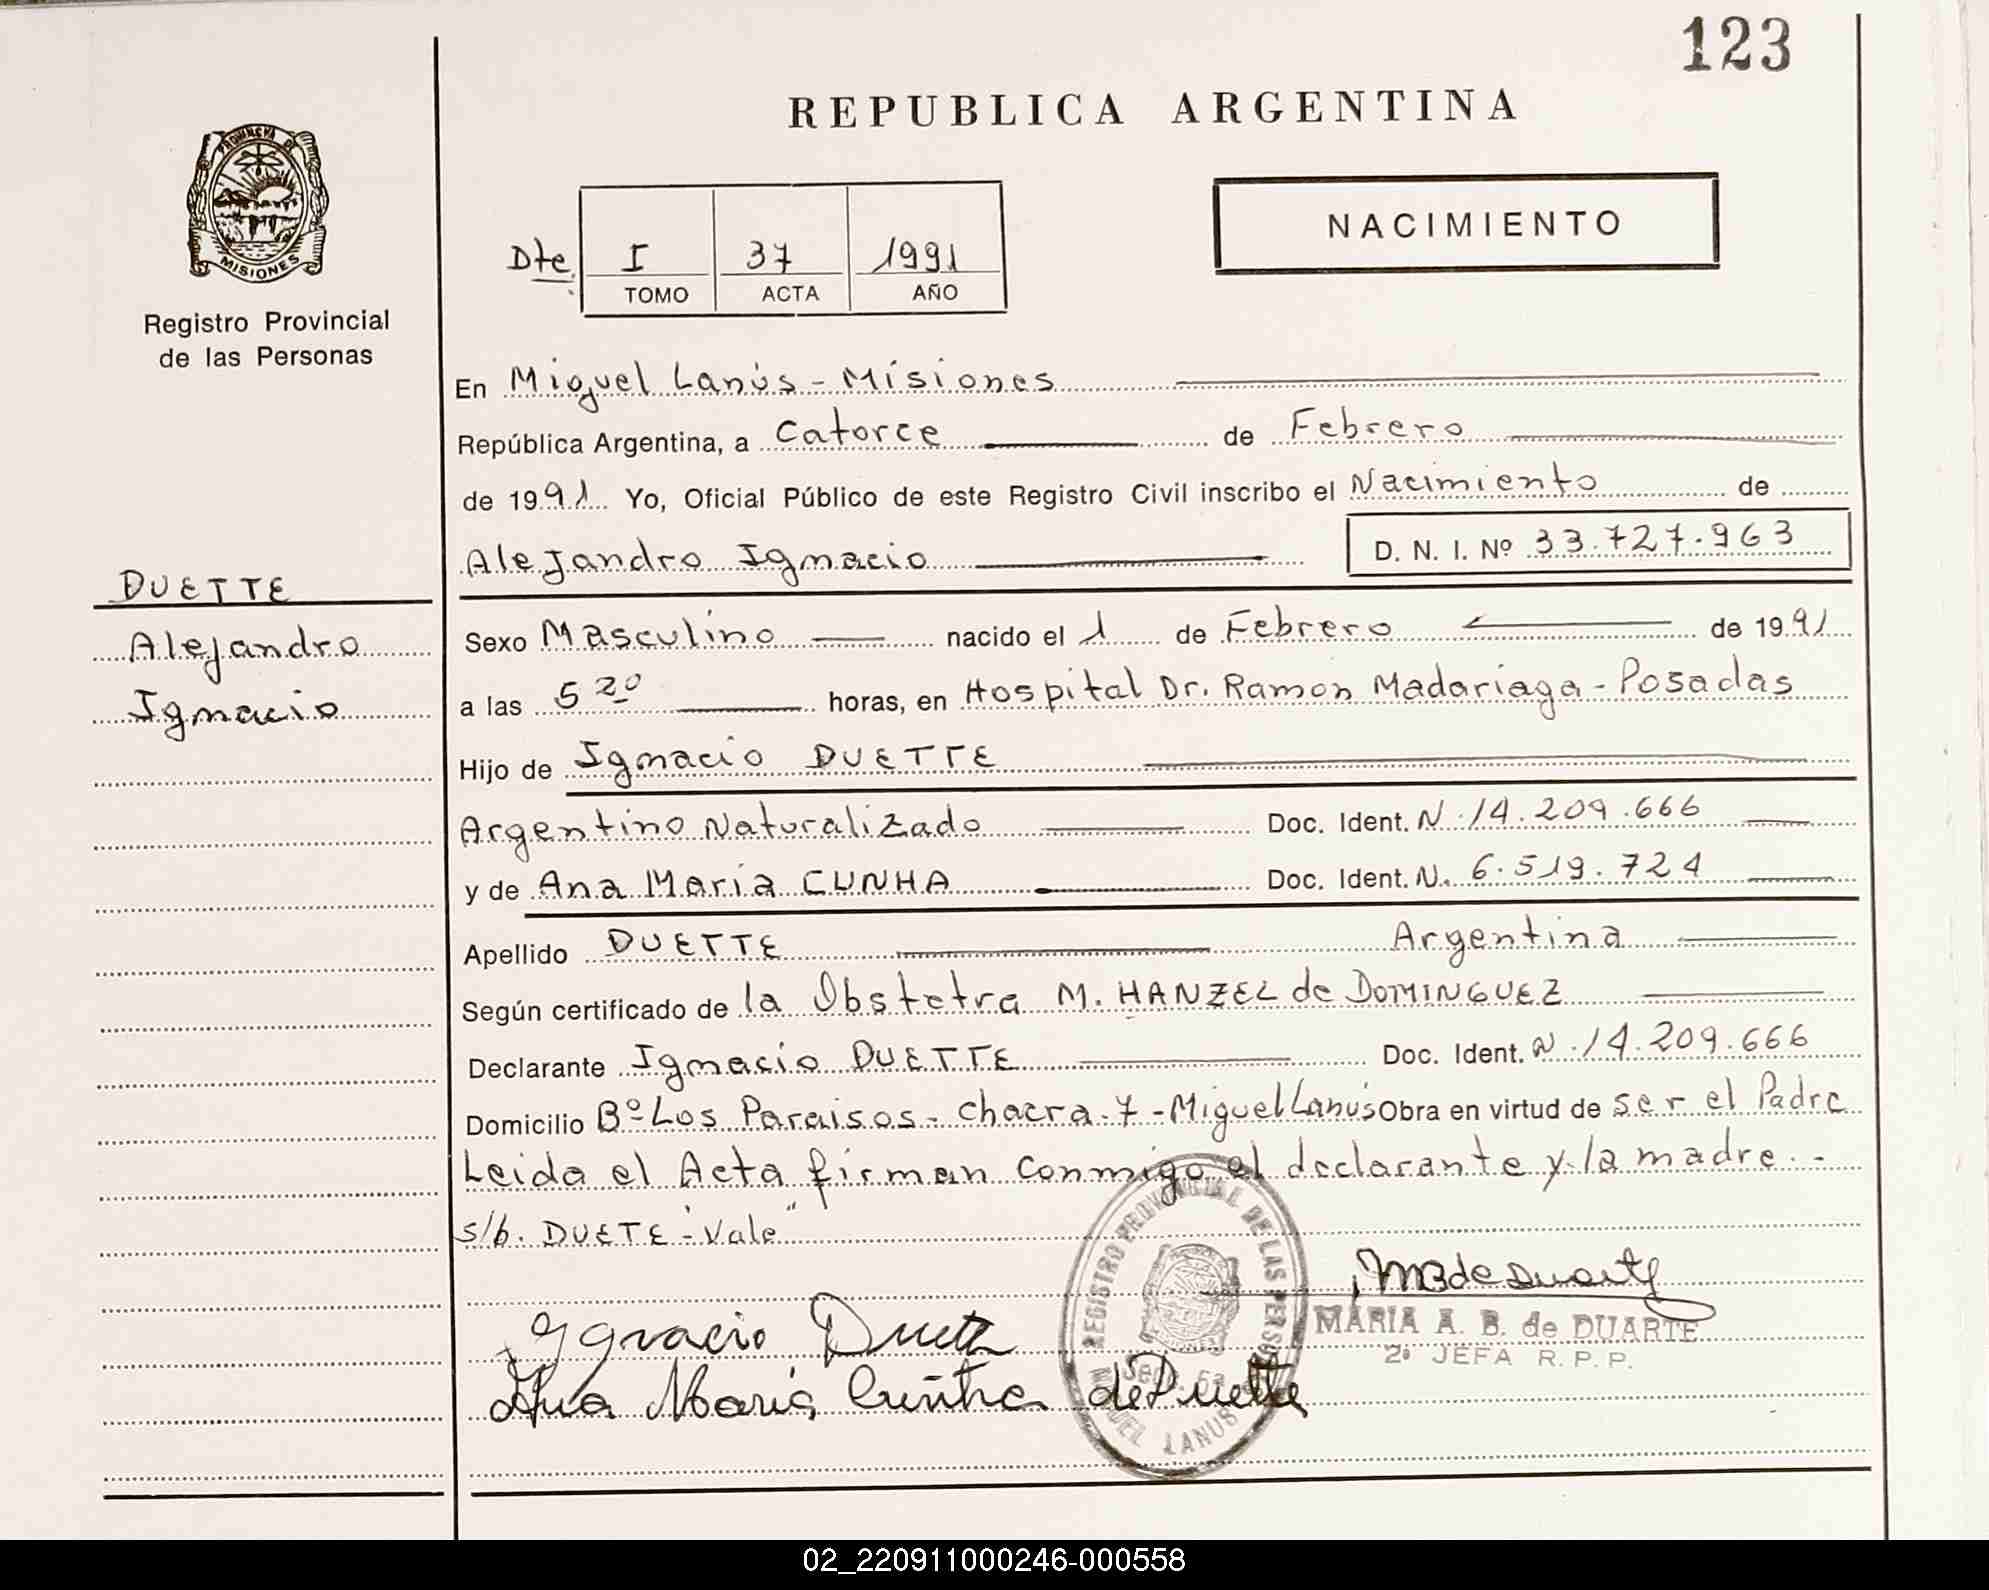 123
REPUBLICA ARGENTINA
PROVINCIA DE
MISIONES
Registro Provincial
de las Personas
NACIMIENTO
Dte. I 37 1991
TOMO ACTA AÑO
En Miguel Lanús - Misiones
República Argentina, a Catorce de Febrero
de 1991 Yo, Oficial Público de este Registro Civil inscribo el Nacimiento de
Alejandro Ignacio D. N. I. Nº 33.727.963
DUETTE
Alejandro
Ignacio
Sexo Masculino nacido el 1 de Febrero de 1991
a las 5 20 horas, en Hospital Dr. Ramón Madariaga - Posadas
Hijo de Ignacio DUETTE
Argentino Naturalizado Doc. Ident. N. 14.209.666
y de Ana María CUNHA Doc. Ident. N. 6.519.724
Apellido DUETTE Argentina
Según certificado de la Obstetra M. HANZEL de DOMINGUEZ
Declarante Ignacio DUETTE Doc. Ident. N. 14.209.666
Domicilio Bº Los Paraisos - Chacra 7 - Miguel Lanús Obra en virtud de ser el Padre
Leida el Acta firman conmigo el declarante y la madre. -
s/b. DUETE - "Vale"
MB de Duarte
MARIA A. B. de DUARTE
2º JEFA R. P. P.
Ignacio Duette
Ana María Cunha de Duette
REGISTRO PROVINCIAL DE LAS PERSONAS
MIGUEL LANUS
02_220911000246-000558